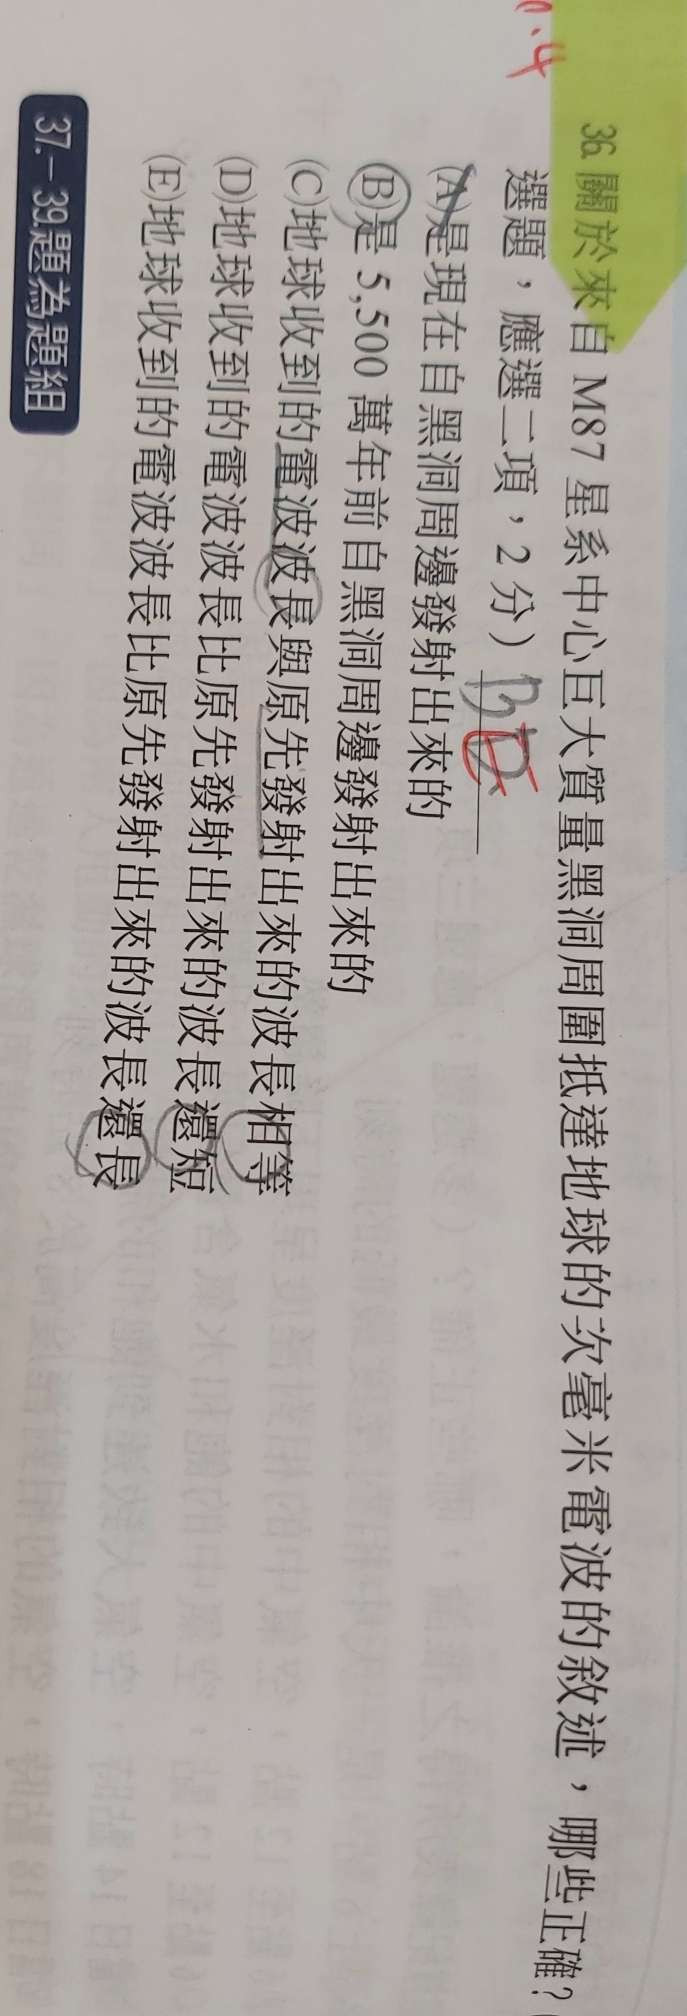 0.4
36.關於來自 M87 星系中心巨大質量黑洞周圍抵達地球的次毫米電波的敘述，哪些正確？（
選題，應選二項，2 分）BE
(A)是現在自黑洞周邊發射出來的
(B)是 5,500 萬年前自黑洞周邊發射出來的
(C)地球收到的電波波長與原先發射出來的波長相等
(D)地球收到的電波波長比原先發射出來的波長還短
(E)地球收到的電波波長比原先發射出來的波長還長
37.－39.題為題組